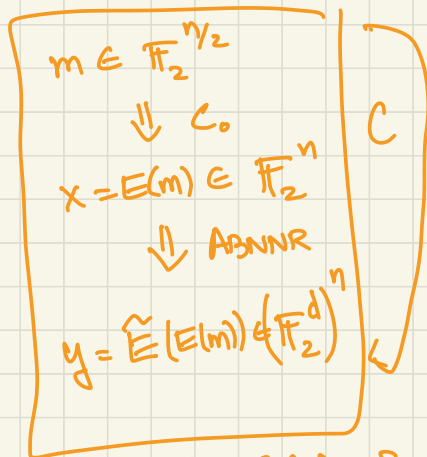 m ∈ 𝔽₂^{n/2}
⇓ C₀
x = E(m) ∈ 𝔽₂ⁿ
⇓ ABNNR
y = Ẽ(E(m)) ∈ (𝔽₂^d)ⁿ
C